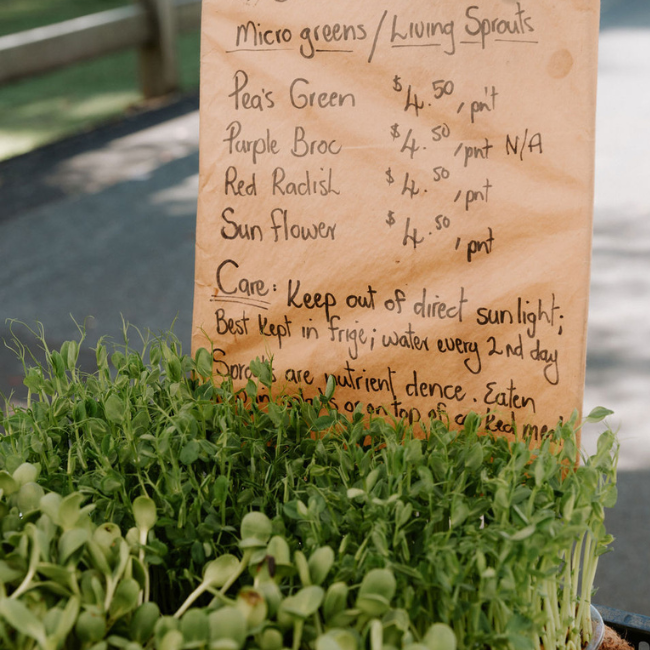 Micro greens / Living Sprouts
Pea's Green $4.50, pn't
Purple Broc $4.50, pnt N/A
Red Radish $4.50, pnt
Sun flower $4.50, pnt
Care: Keep out of direct sunlight;
Best kept in frige; water every 2nd day
Sprouts are nutrient dence. Eaten
or on top of cooked